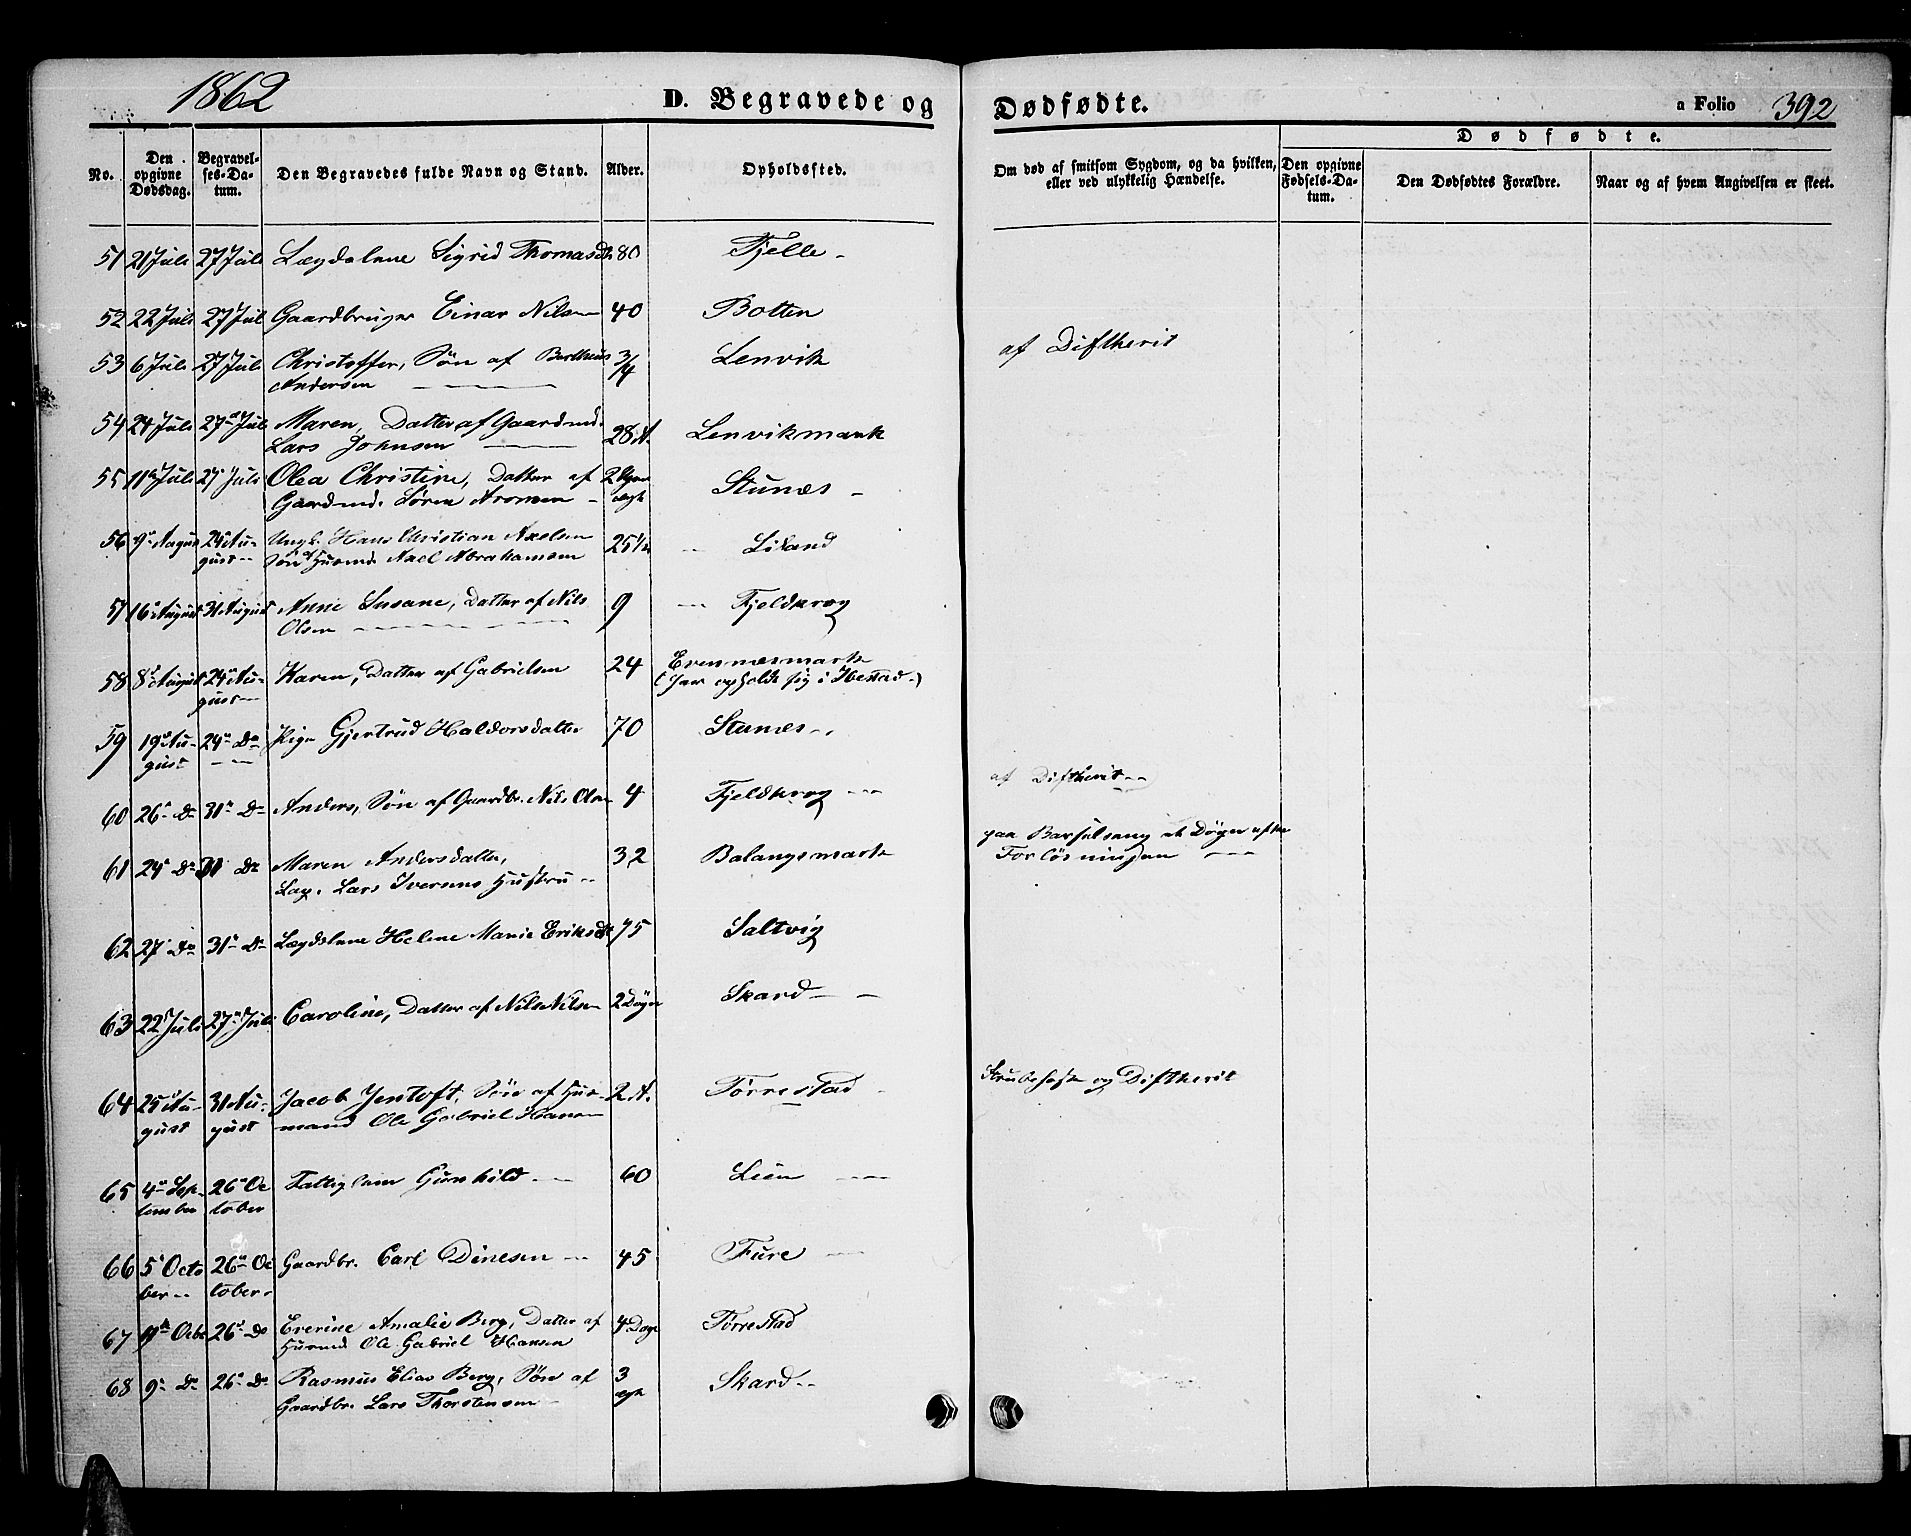 1862
D. Begravede og Dødfødte.
a Folio 392
No.
Den opgivne Dødsdag.
Begravel-ses-Da-tum.
Den Begravedes fulde Navn og Stand.
Alder.
Opholdssted.
Om død af smitsom Sygdom, og da hvilken, eller ved ulykkelig Hændelse.
Dødfødte.
Den opgivne Fødsels-Da-tum.
Den Dødfødtes Forældre.
Naar og af hvem Angivelsen er skeet.
51 21 Juli 27 Juli Lægdslune Sigrid Thomasdt 80 Fjelle
52 22 Juli 27 Jul Gaardbruger Einar Nilsen 40 Botten
53 6 Juli 27 Juli Christoffer, Søn af Berthus 3/4 Lenvik af Diftherit
Andersen
54 24 Juli 27 Juli Maren, Datter af Gaardmd. 28 A. Lenvikmark
Lars Johnsen
55 11 Juli 27 Juli Olea Christine, Datter af 2 Stunæs
Gaardmd. Søren Aronsen
56 9 August 24 Au- Ungk. Hans Christian Axelsen 25 1/2 Liland
gust Søn af Husmd. Axel Abrahamsen
57 16 August 31 August Anne Susane, Datter af Nils 9 Fjeldkrog
Olsen
58 8 August 24 Au- Karen, Datter af Gabrielsen 24 Evennæsmark
gust (har opholdt sig i Ibestad)
59 19 Au- 24 Do Pige Gjertrud Haldorsdatter 70 Stunæs
gust
60 26 Do 31 Do Anders, Søn af Gaardbr. Nils Olsen 4 Fjeldkrog af Diftherit
61 24 Do 31 Do Maren Andersdatter, 32 Balangsmark paa Barselseng et Døgn efter
Lap. Lars Iversens Hustru Forløsningen
62 27 Do 31 Do Lægdslune Helene Marie Eriksdt 75 Saltvig
63 22 Juli 27 Juli Caroline, Datter af Nils Nilsen 2 Døgn Skard
64 25 Au- 31 Au- Jacob Jentoft, Søn af Hus- 2 A. Tørrestad Strubehoste og Diftherit
gust gust mand Ole Gabriel Hansen
65 4 Sep- 26 Oc Fattiglem Gunhild 60 Lien
tember tober
66 5 Octo 26 Oc Gaardbr. Carl Dinesen 45 Fure
ber tober
67 Octb 26 Do Everine Amalie Berg, Datter af 4 Dage Tørrestad
Husmd. Ole Gabriel Hansen
68 9 Do 26 Do Rasmus Elias Berg, Søn af 3 Skard
Gaardbr. Lars Thorstensen